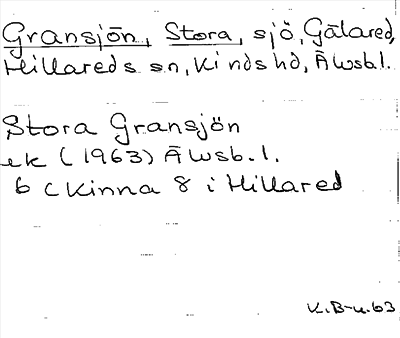 Gransjön, Stora, sjö, Gålared,
Hillareds sn, Kinds hd, Älvsb.l.
Stora Gransjön
ek (1963) Älvsb.l.
6 C Kinna 8 i Hillared
K.B-u.63